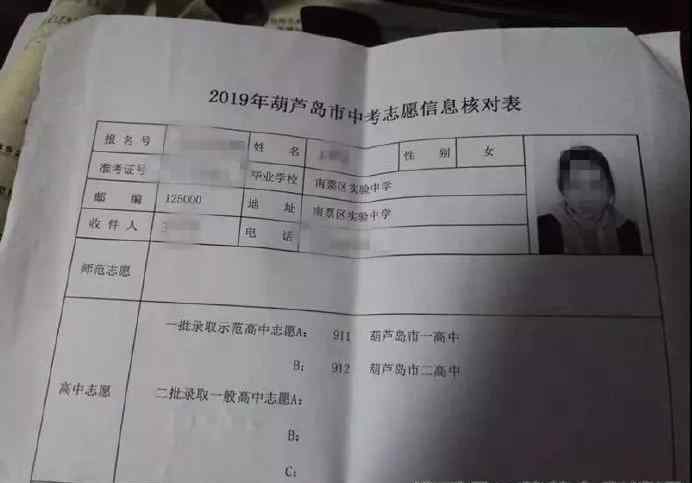 2019年葫芦岛市中考志愿信息核对表
报名号 姓名 性别 女
准考证号 毕业学校 南票区实验中学
邮编 125000 地址 南票区实验中学
收件人 电话
师范志愿
一批录取示范高中志愿A: 911 葫芦岛市一高中
B: 912 葫芦岛市二高中
高中志愿 二批录取一般高中志愿A:
B:
C: